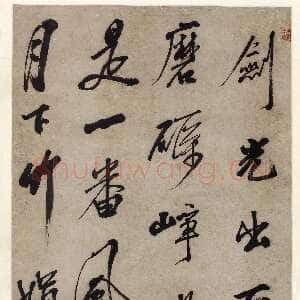 劍光出
磨礪崢
是一番風
月下竹